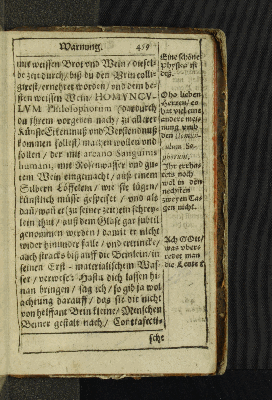 Warnung. 459
mit weissen Brot vnd Wein / diesel-
be zeit durch / biß du den Vrin colli-
girest / ernehret worden / vnd dem be-
sten weissen Wein / HOMVNCV-
LVM Philosophorum (dardurch
du ihrem vorgeben nach / zu aller
Künste Erkentnuß vnd Verstendnuß
kommen sollest) machen wollen vnd
sollen / der mit arcano Sanguinis
humani, mit Rosenwasser vnd gu-
tem Wein eingemacht / auß einem
Silbern Löffelein / wie sie lügen /
künstlich müsse gespeiset / vnd als
dann / wann er (zu seiner zeit) ein schrey-
lein thut / auß dem Glase gar subtil
genommen werden / damit er nicht
wider hinunder falle / vnd ertrincke /
auch stracks biß auff die Beinlein / in
seinen Erst-materialischem Was-
ser / verwese: Hastu dich lassen hi-
nan bringen / sag ich / so gib ja wol
achtung darauff / das sie dir nicht
von helffant Bein kleine / Menschen
Beiner gestalt nach / Contrafecti-
sche
Eine schöne
Physica ist
diß.
O ho lieben
Herzen / es
hat viel eine
andere mei-
nung vmb
den
Sa-
nguinis,
wol in den
nechsten
zweyen Ta-
gen nicht.
Ach GOtt /
was vber-
redet man
die Leute?